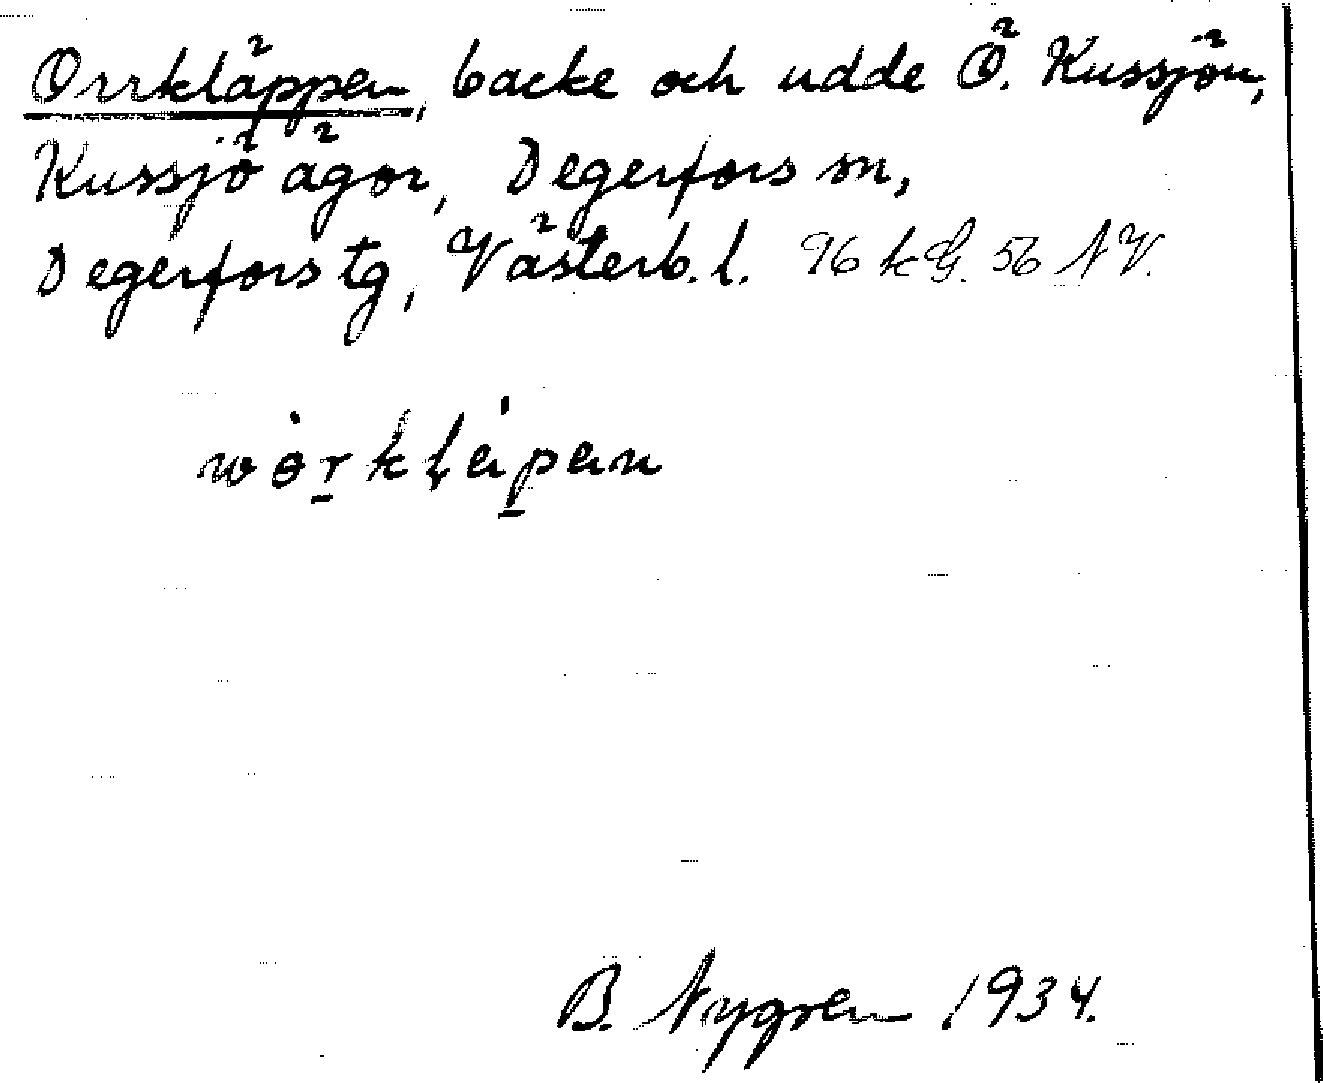 Orrkläppen, backe och udde Ö. Kussjön,
Kussjö ägor, Degerfors sn,
Degerfors tg, Västerb. l. 96 k G. 56 NV.
wòrklápen
B. Nygren 1934.